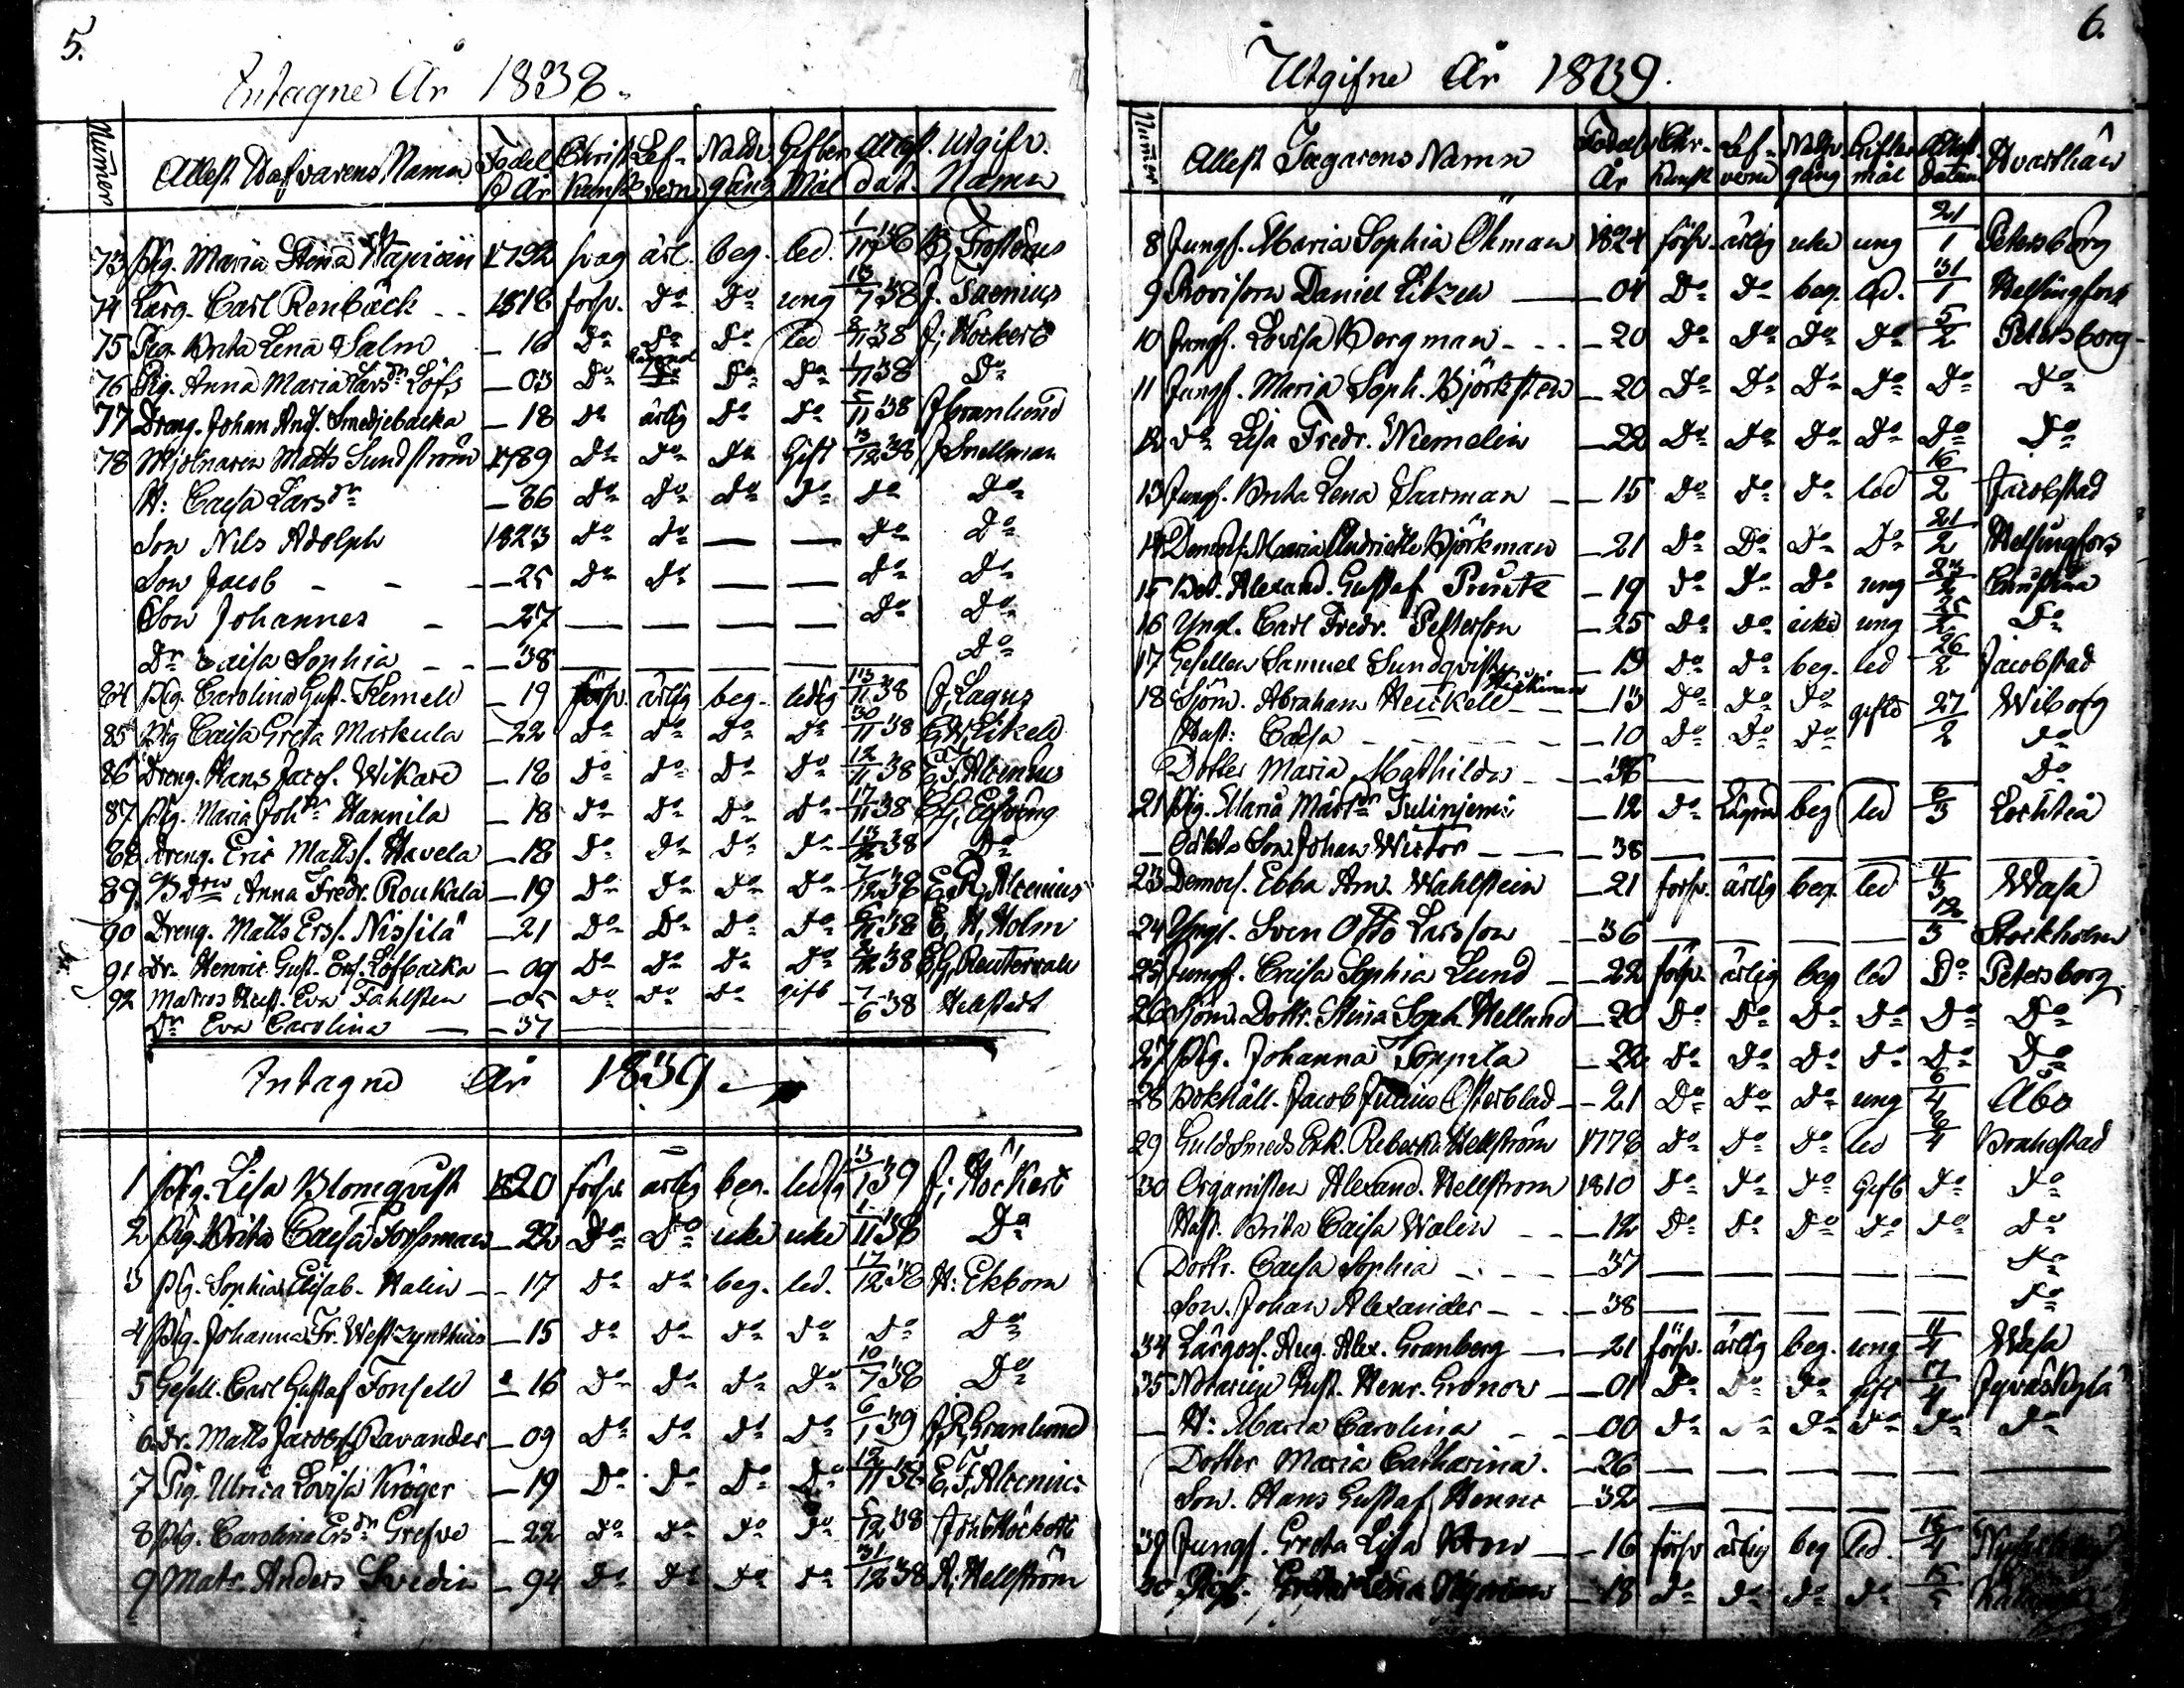 5.
Intagne År 1838.
Numer
Attest Hafvarens Namn
Födel
s År
Christ
Kunsk
Lef-
vern
Nattv.
gång
Gifter
Mål
Attest.
dat.
Utgifv.
Namn
73 Pig. Maria Stina 1792 svag ärl. beg. led. 1/11 38
74 Lärg. Carl Renbäck 1818 försv. Do Do ung 13/7 38
75 Pig. Brita Lena Salm – 16 Do Do Do led 2/11 38 J. Höckert
76 Pig. Anna Maria Larsdr Löfs – 03 Do Do Do 1/11 38 Do
77 Dräng. Johan And. Smedjebacka – 18 Do ärlig Do Do 5/11 38 J Granlund
78 Mjölnaren Matts Sundström 1789 Do Do Do Gift 13/12 38 J Snellman
H: Caisa Larsdr – 86 Do Do Do Do Do Do
Son Nils Adolph 1823 Do Do — — Do Do
Son Jacob – 25 Do Do — — Do Do
Son Johannes – 27 — — — — Do Do
Dr Caisa Sophia – 38 — — — — — Do
84 Pig. Carolina Gust. Kemell – 19 försv. ärlig beg. ledig 13/11 38 J. Lagus
85 Pig Caisa Greta Markula – 22 Do Do Do Do 30/11 38
86 Dräng. Hans Jacos. Wikare – 18 Do Do Do Do 12/11 38 E, F, Alcenius
87 Pig. Maria Johdr Hannila – 18 Do Do Do Do 17/11 38
88 Dräng. Eric Mattss. Havela – 18 Do Do Do Do 38 Do
89 Anna Fredr. Roukala – 19 Do Do Do Do 7/12 38 Alcenius
90 Dräng. Matts Erss. Nissilä – 21 Do Do Do Do 38 E, H, Holm
91 Dr. Henric Gust. Ers. Löfbacka – 09 Do Do Do Do 38
92 Matros Hust. Eva Fahlsten – 05 Do Do Do gift 7/6 38 Hellstedt
Dr Eva Carolina – 37
Intagne År 1839
1 Pig. Lisa Blomqvist 1820 försv. ärlig beg. ledig 13/1 39 J. Höckert
2 Pig. Brita Caisa Forssman – 22 Do Do icke icke 1/11 38 Do
3 Pig. Sophia Elisab. Halin – 17 Do Do beg. led. 17/12 38 H. Ekbom
4 Pig. Johanna Fr. Westzynthius – 15 Do Do Do Do Do Do
5 Gesell. Carl Gustaf Fonsell – 16 Do Do Do Do 10/7 38 Do
6 Dr. Matts Jacobss. Ravander – 09 Do Do Do Do 6/1 39 J, R, Granlund
7 Pig. Ulrica Lovisa Kröger – 19 Do Do Do Do 12/11 38 E, F, Alcenius
8 Pig. Carolina Ersdr Grefve – 22 Do Do Do Do 5/12 38 Joh Höckert
9 Matr. Anders Svedin – 94 Do Do Do Do 31/12 38 A, Hellström
6.
Utgifne År 1839.
Numer
Attest Tagarens Namn
Födels
År
Chr.
Kunsk
Lef-
verne
Nattv.
gång
Gifter
mål
Attest.
datum
Hvarthän
8 Jungf. Maria Sophia Öhman 1824 försv. ärlig icke ung 21/1 Petersborg
9 Provisorn Daniel Litzen – 04 Do Do beg. led. 31/1 Helsingfors
10 Jungf. Lovisa Bergman – 20 Do Do Do Do 5/2 Petersborg
11 Jungf. Maria Soph. Björksten – 20 Do Do Do Do Do Do
12 Do Lisa Fredr. Niemelin – 22 Do Do Do Do Do Do
13 Jungf. Brita Lena Saarman – 15 Do Do Do led 16/2 Jacobstad
14 Demois. Maria Björkman – 21 Do Do Do Do 21/2 Helsingfors
15 Bet. Alexand. Gustaf – 19 Do Do Do ung 23/2
16 Yngl. Carl Fredr. Petterson – 25 Do Do icke ung 25/2 Do
17 Gesellen Samuel Sundqvist – 19 Do Do beg. led 26/2 Jacobstad
18 Sjöm. Abraham Henkell – 13 Do Do Do gifte 27/2 Wiborg
Hust: Caisa – 10 Do Do Do Do
Dotter Maria Mathilda – 36 — — — — — Do
21 Pig. Maria Märtdr – 12 Do beg led 6/3 Lochteå
Oäkta Son Johan Wictor – 38 — — — — —
23 Demois. Ebba Am. Wahlstein – 21 försv. ärlig beg. led 11/3 Wasa
24 Yngl. Sven Otto Larsson – 36 — — — — 12/3 Stockholm
25 Jungf. Caisa Sophia Lund – 22 försv. ärlig beg led Do Petersborg
26 Sjöm. Dottr. Stina Soph. Helland – 20 Do Do Do Do Do Do
27 Pig. Johanna Soppila – 22 Do Do Do Do Do Do
28 Bokhåll. Jacob Julius Österblad – 21 Do Do Do ung 6/4 Åbo
29 Guldsmeds Enk. Rebecka Hellström 1778 Do Do Do led 9/4 Brahestad
30 Organisten Alexand. Hellström 1810 Do Do Do Gift Do Do
Hust. Brita Caisa Walin – 12 Do Do Do Do Do Do
Dottr. Caisa Sophia – 37 — — — — — Do
Son. Johan Alexander – 38 — — — — — Do
34 Lärgos. Aug. Alex. Granberg – 21 försv. ärlig beg. ung 11/4 Wasa
35 Notarien Gust. Henr. Gronow – 01 Do Do Do gift 17/4 Jyväskylä
H: Maria Carolina – 00 Do Do Do Do Do Do
Dotter Maria Catharina. – 26 — — — — — —
Son. Hans Gustaf Henric – 32 — — — — — —
39 Jungf. Greta Lisa – 16 försv ärlig beg led. 18/4
Greta Lena – 18 Do Do Do Do